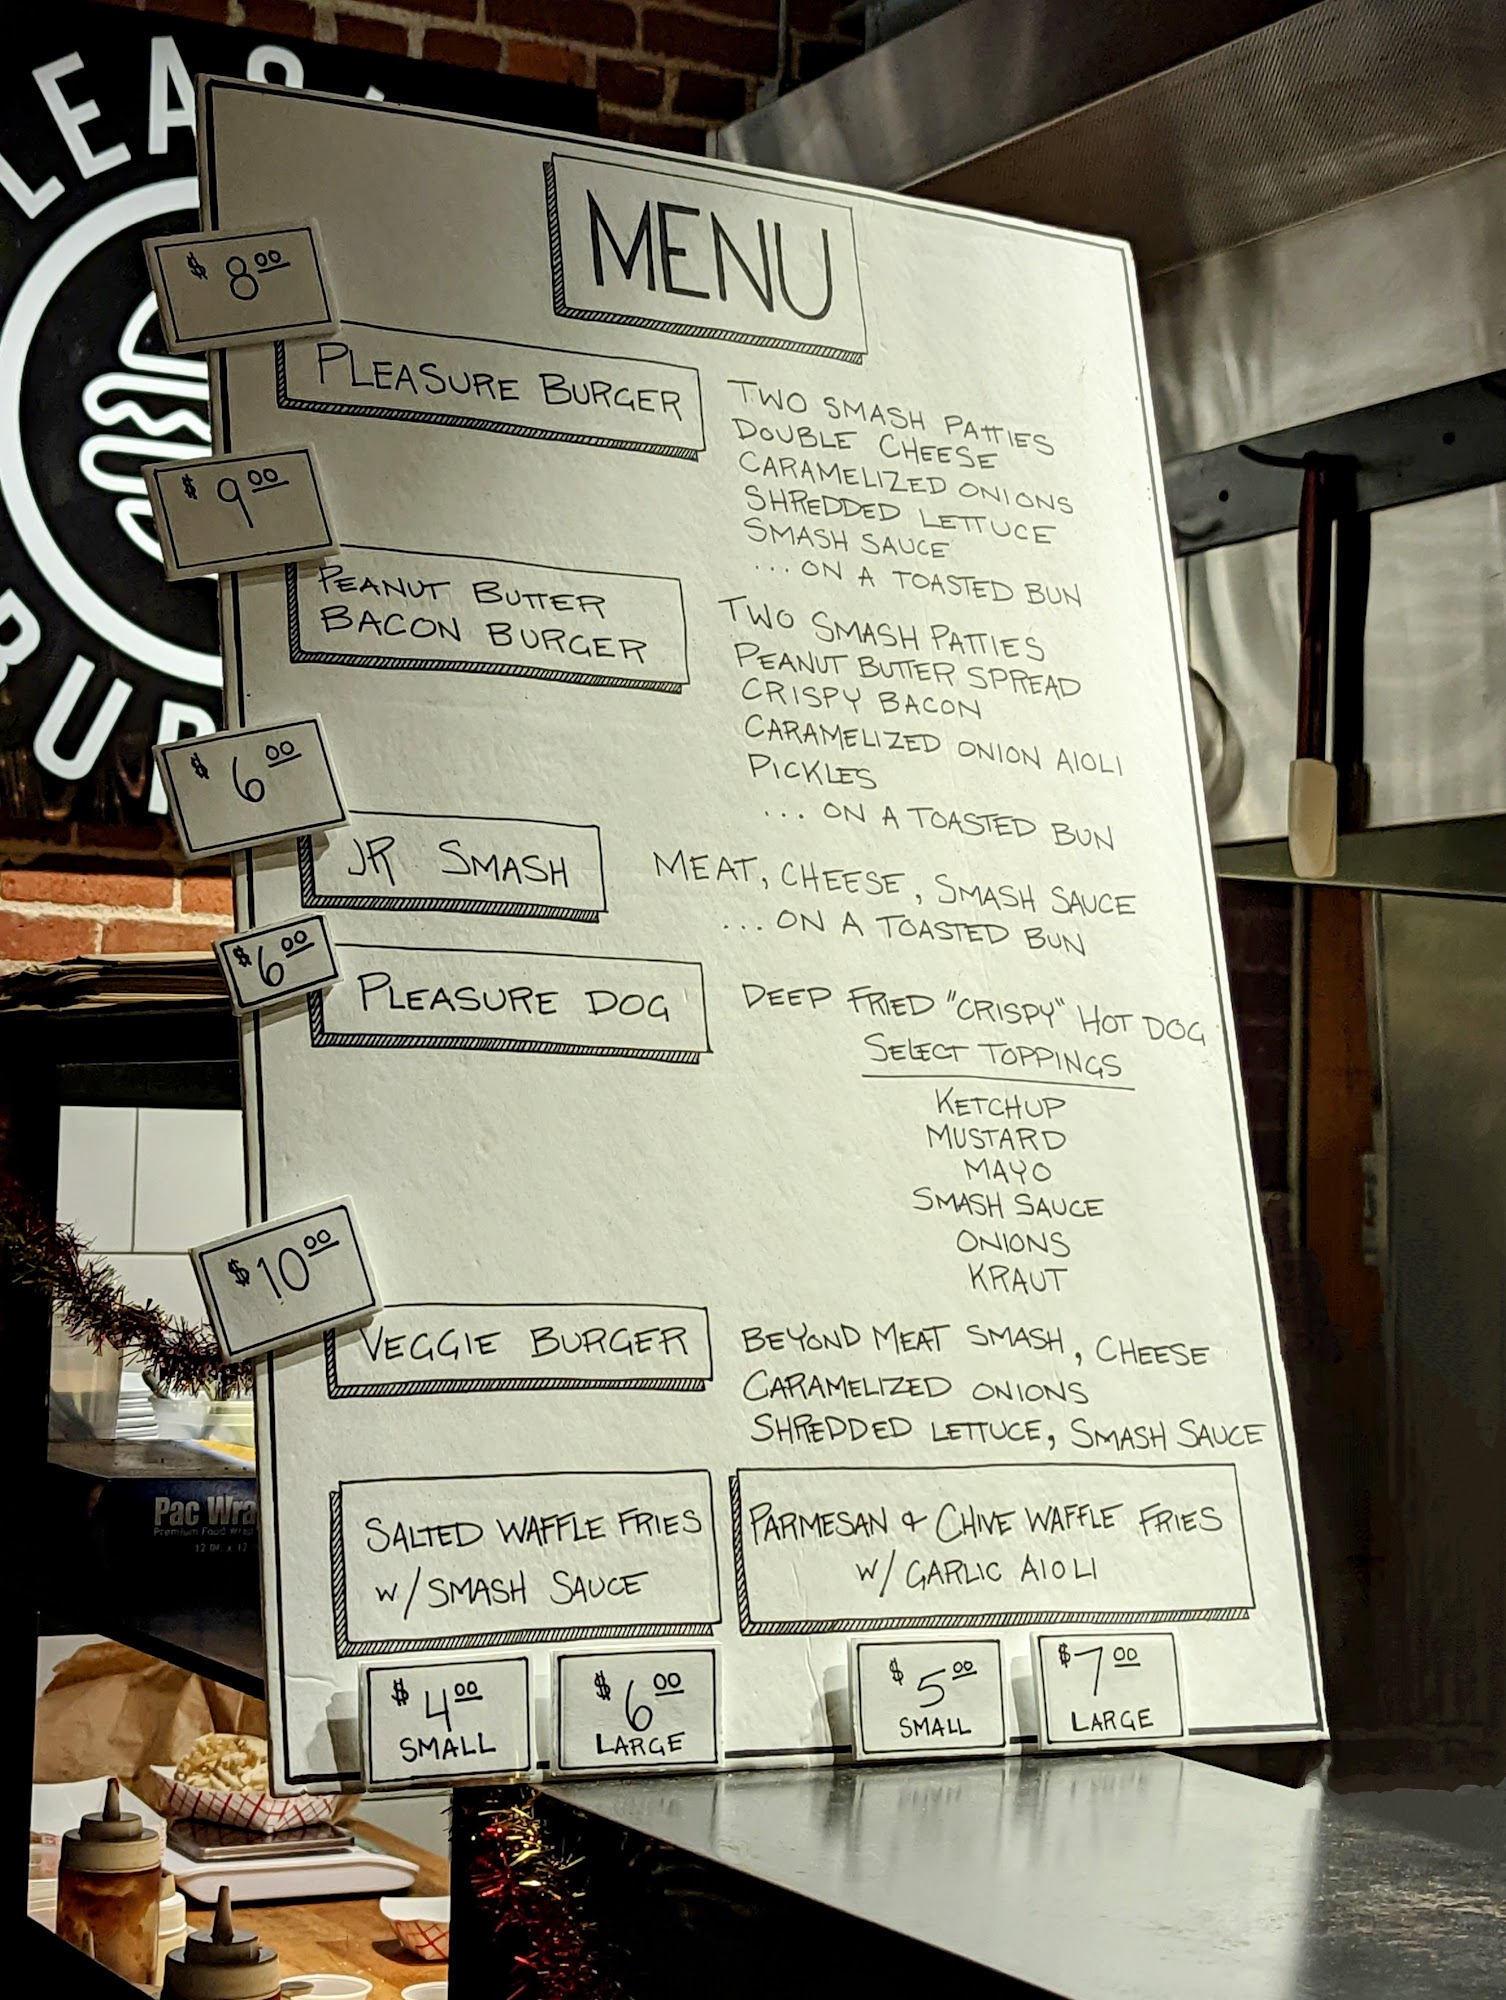 MENU
$8.00
PLEASURE BURGER
TWO SMASH PATTIES
DOUBLE CHEESE
CARAMELIZED ONIONS
SHREDDED LETTUCE
SMASH SAUCE
... ON A TOASTED BUN
$9.00
PEANUT BUTTER
BACON BURGER
TWO SMASH PATTIES
PEANUT BUTTER SPREAD
CRISPY BACON
CARAMELIZED ONION AIOLI
PICKLES
... ON A TOASTED BUN
$6.00
JR SMASH
MEAT, CHEESE, SMASH SAUCE
... ON A TOASTED BUN
$6.00
PLEASURE DOG
DEEP FRIED "CRISPY" HOT DOG
SELECT TOPPINGS
KETCHUP
MUSTARD
MAYO
SMASH SAUCE
ONIONS
KRAUT
$10.00
VEGGIE BURGER
BEYOND MEAT SMASH, CHEESE
CARAMELIZED ONIONS
SHREDDED LETTUCE, SMASH SAUCE
SALTED WAFFLE FRIES
W/ SMASH SAUCE
$4.00
SMALL
$6.00
LARGE
PARMESAN & CHIVE WAFFLE FRIES
W/ GARLIC AIOLI
$5.00
SMALL
$7.00
LARGE
Pac Wra
Premium Food Wrap